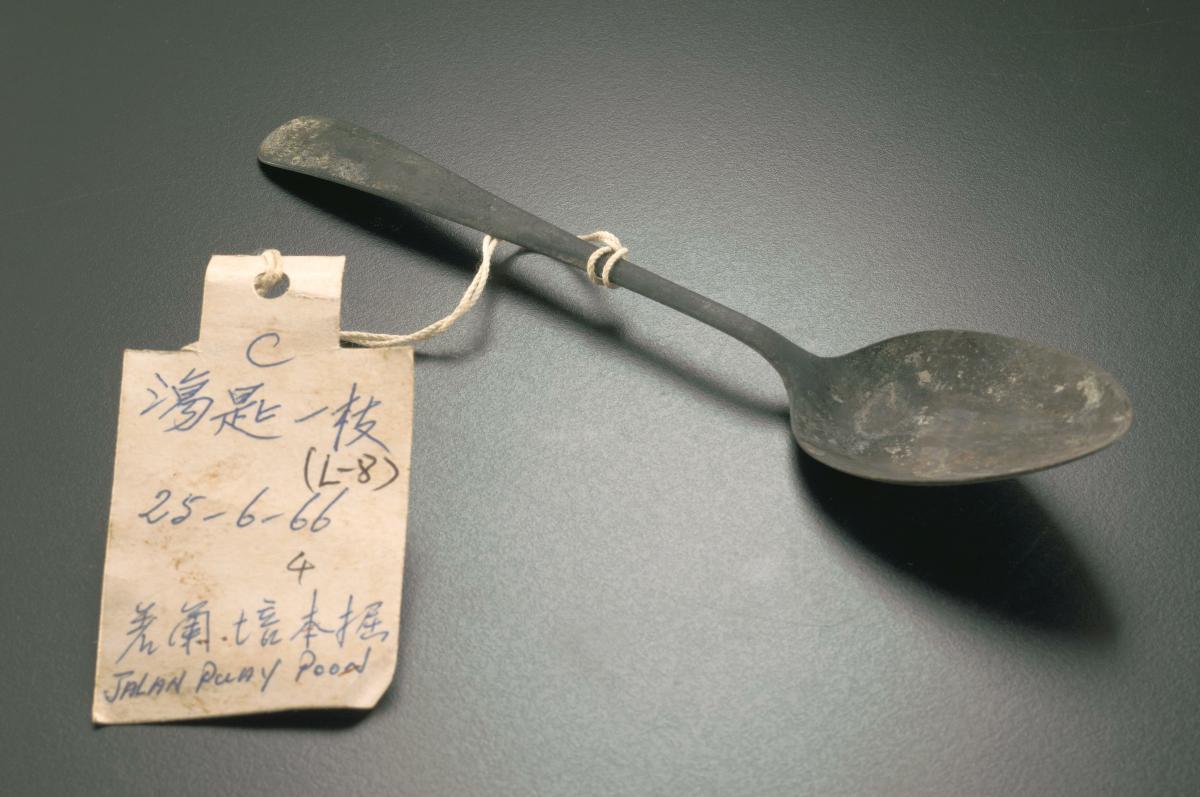 C
湯匙一枝
(L-8)
25-6-66
4
惹蘭.培本掘
JALAN PUAY POON